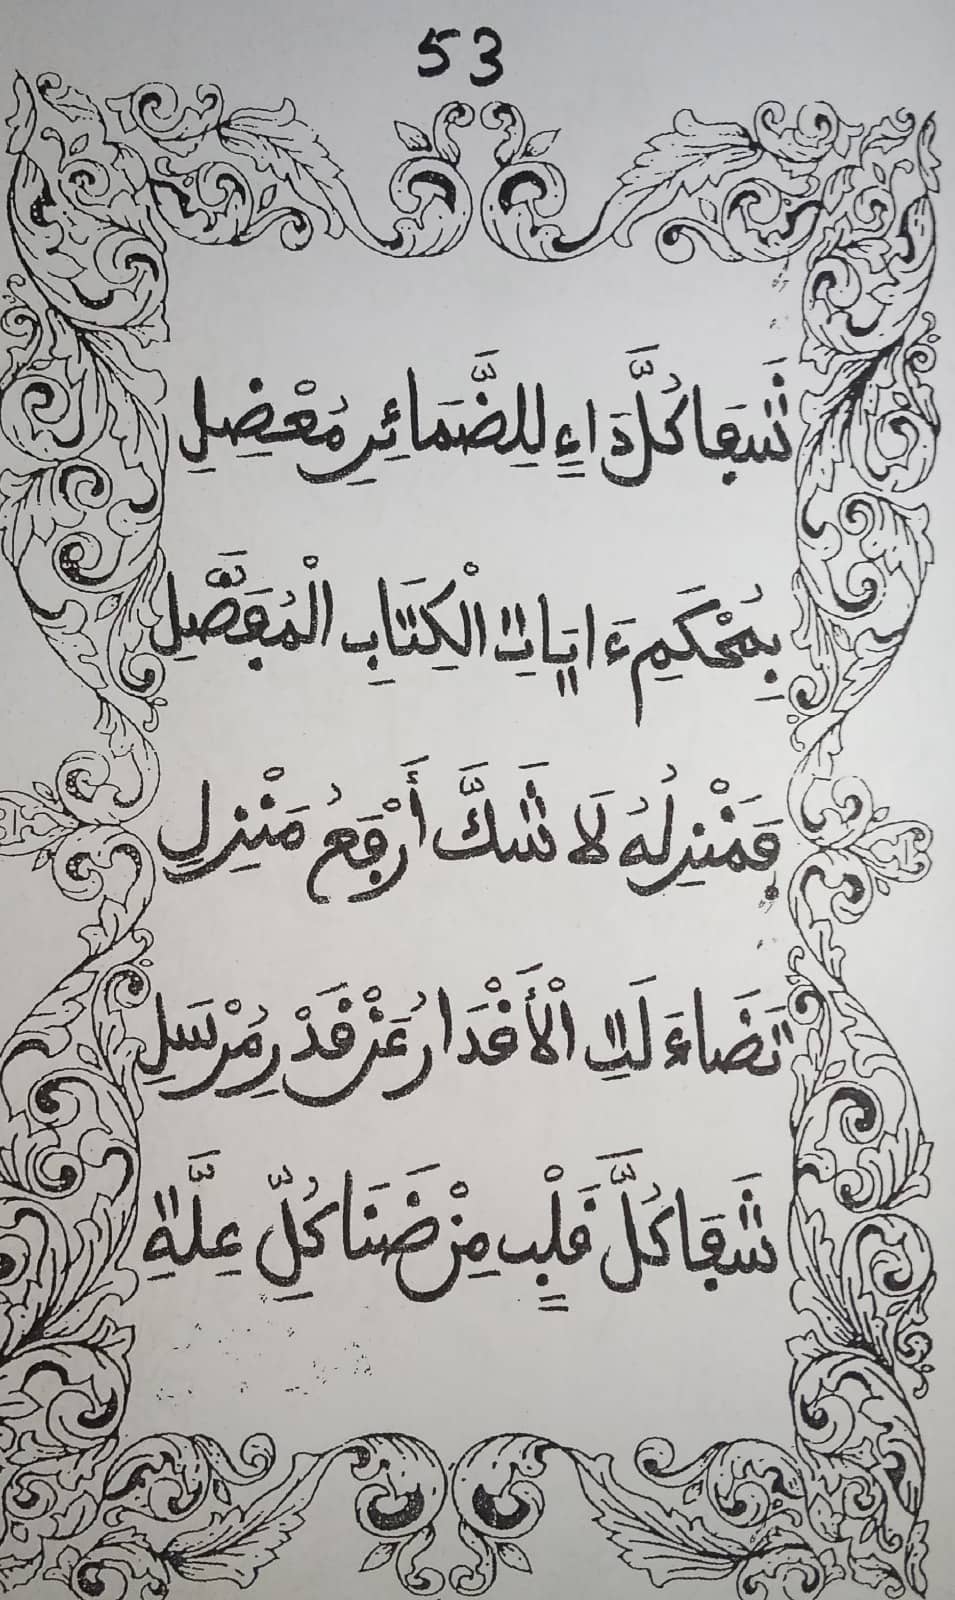 53
شَفَا كُلَّ دَاءٍ لِلضَّمَائِرِ مُعْضِلِ
بِمُحْكَمِ ءَايَاتِ الْكِتَابِ الْمُفَصَّلِ
فَمَنْزِلُهُ لَا شَكَّ أَرْفَعُ مَنْزِلِ
تَضَاءَلَتِ الْأَقْدَارُ عَنْ قَدْرِ مُرْسَلِ
شَفَا كُلَّ قَلْبٍ مِنْ ضَنَا كُلِّ عِلَّةِ